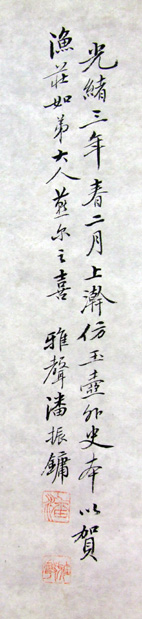 光緒三年春二月上澣仿玉壺外史本以賀
漁莊如弟大人燕尔之喜 雅聲潘振鏞